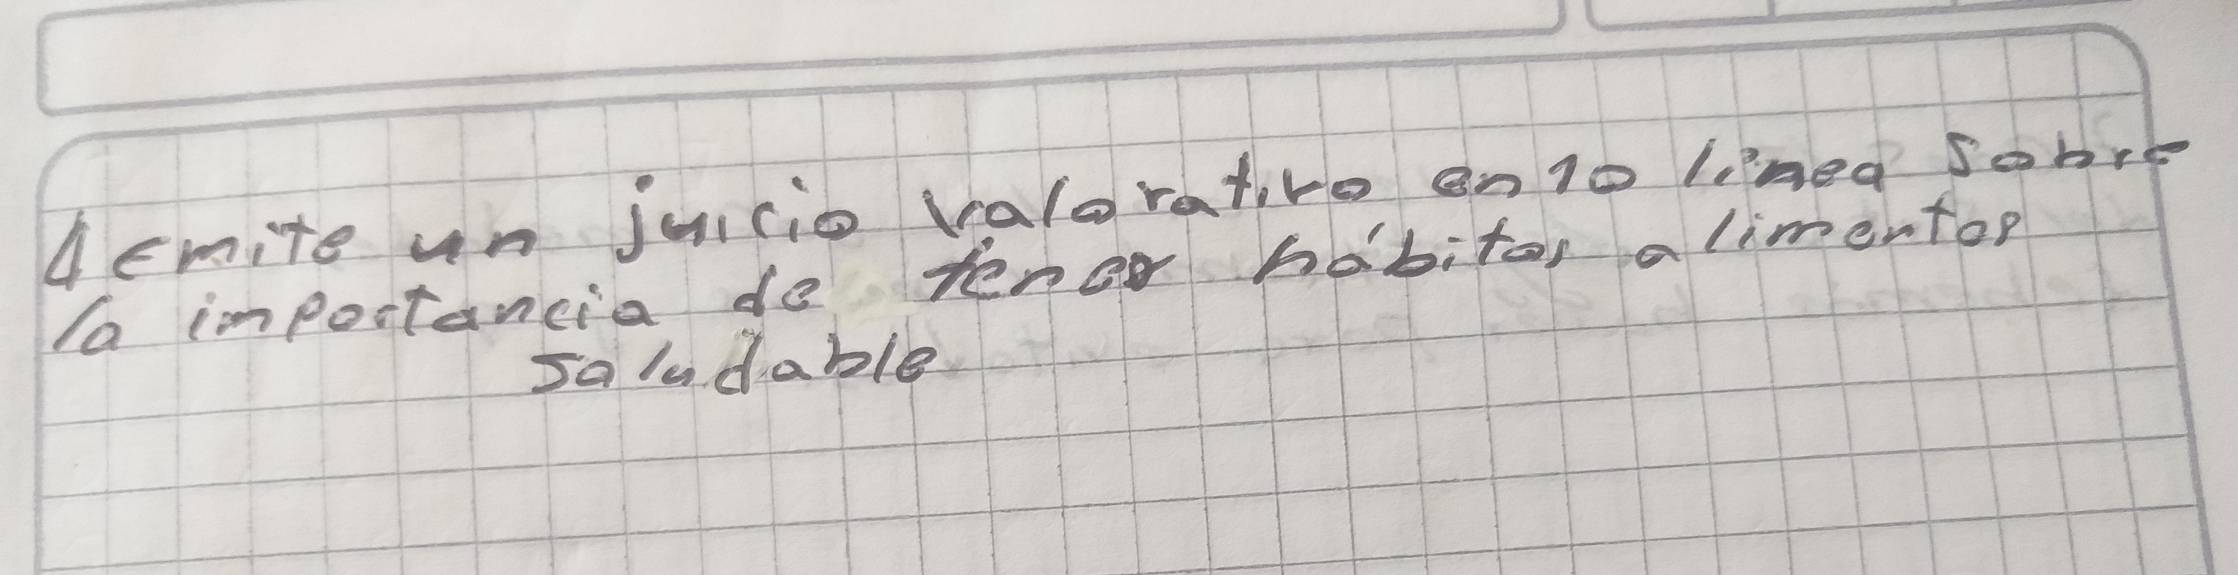 4 Emite un juicio valorativo en 10 linea sobre
la importancia de tener hábitos alimentos
saludable